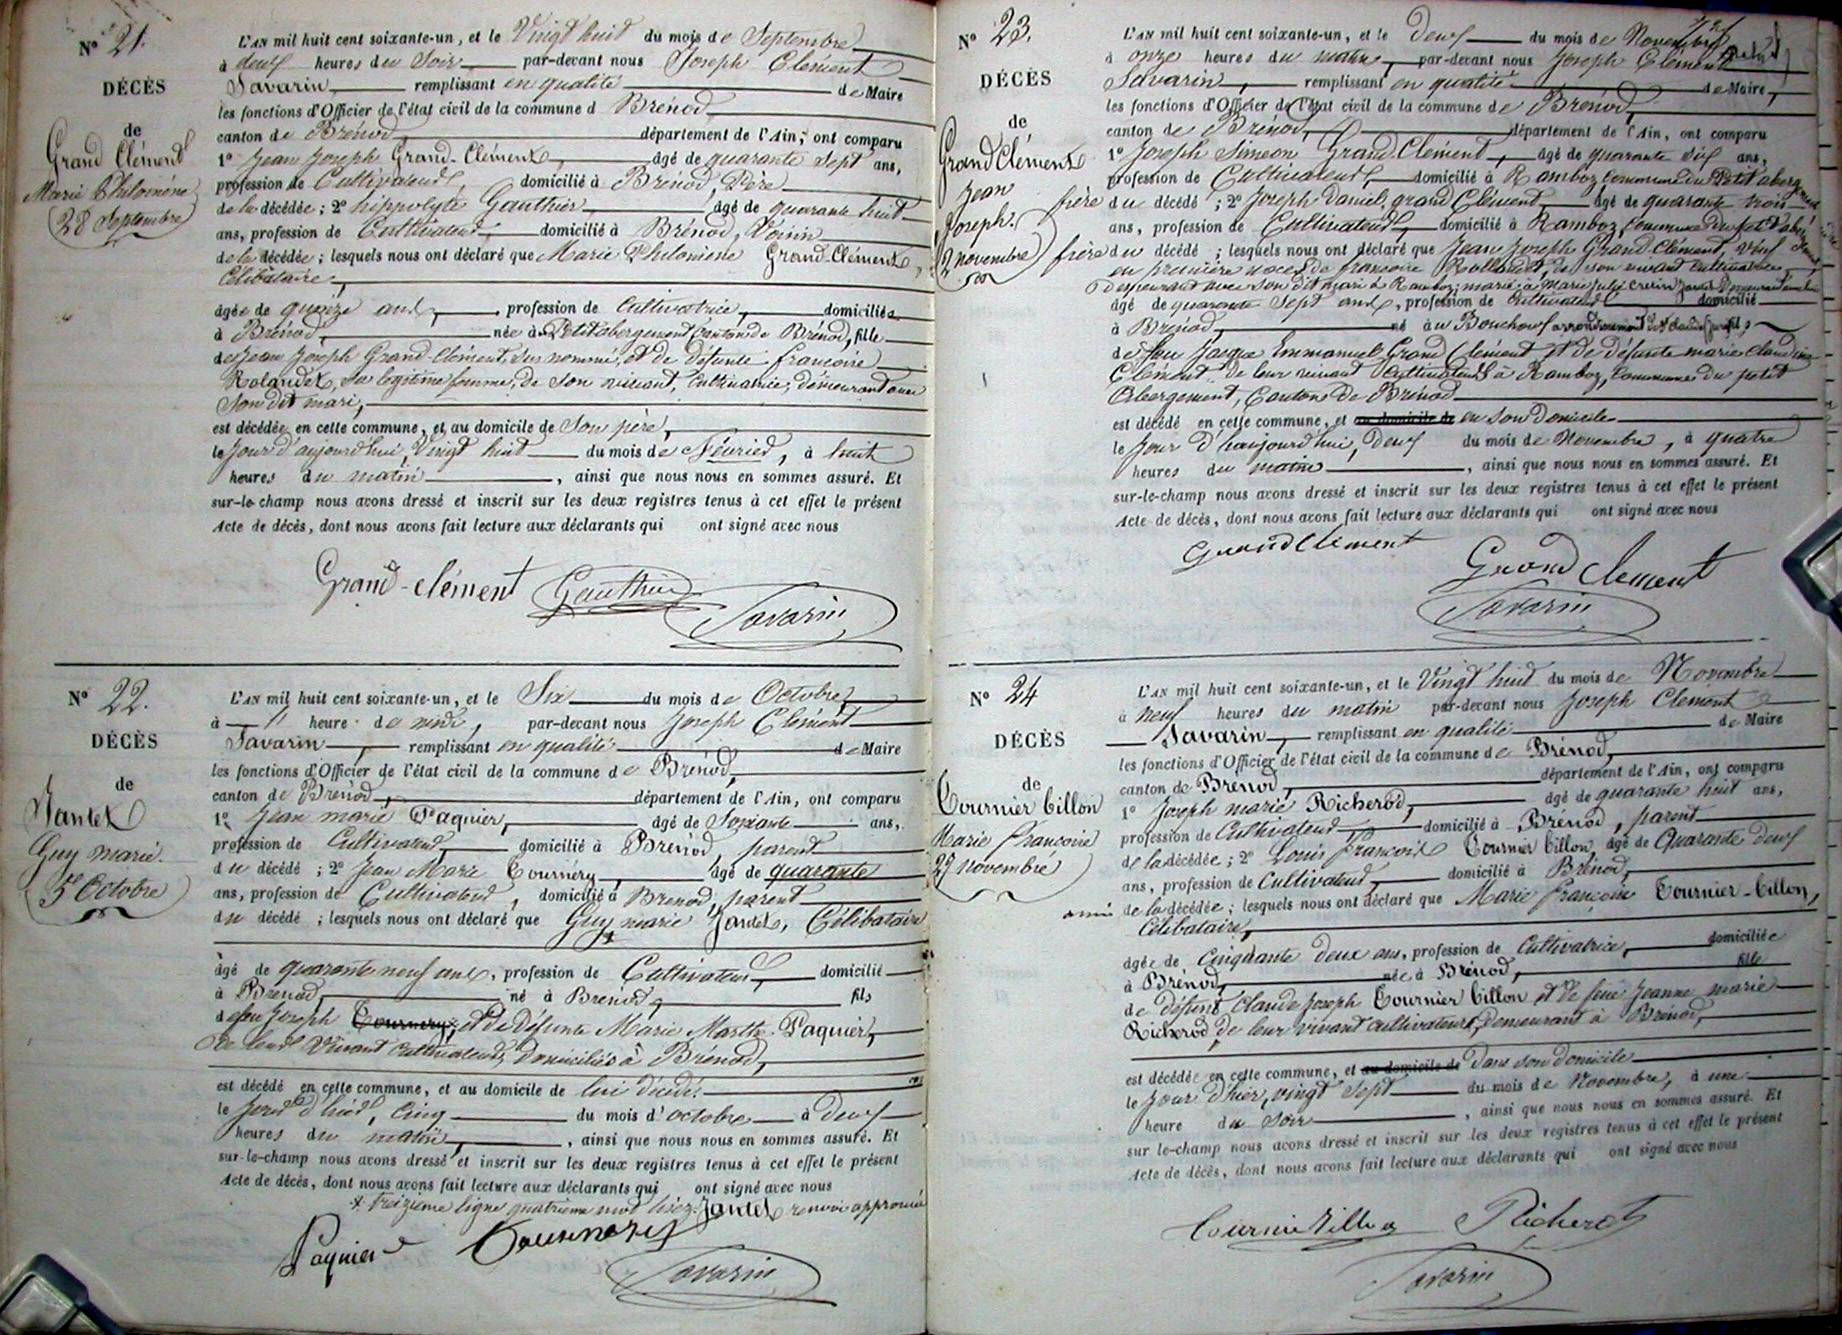 N° 21.
DÉCÈS
de
Grand Clément
Marie Philomène
28 Septembre
L'AN mil huit cent soixante-un, et le Vingt huit du mois de Septembre
à deux heures du Soir par-devant nous Joseph Clément
Savarin, remplissant en qualité de Maire
les fonctions d'Officier de l'état civil de la commune d Brénod
canton de Brénod, département de l'Ain, ont comparu
1° Jean Joseph Grand-Clément, âgé de quarante Sept ans,
profession de Cultivateur, domicilié à Brénod, Père
de la décédée ; 2° hippolyte Gauthier, âgé de quarante huit
ans, profession de Cultivateur, domicilié à Brénod, Voisin
de la décédée ; lesquels nous ont déclaré que Marie Philomène Grand-Clément,
Célibataire,
âgée de quinze ans, profession de Cultivatrice, domiciliée
à Brénod, née à Petit abergement Canton de Brénod, fille
de Jean Joseph Grand-Clément, sus nommé, et de défunte francoise
Rolandet, sa légitime femme, de son vivant, Cultivatrice, démeurant avec
Son dit mari,
est décédée en cette commune, et au domicile de Son père,
le Jour d'aujourd'hui, Vingt huit du mois de Février, à huit
heures du matin, ainsi que nous nous en sommes assuré. Et
sur-le-champ nous avons dressé et inscrit sur les deux registres tenus à cet effet le présent
Acte de décès, dont nous avons fait lecture aux déclarants qui ont signé avec nous
Grand-clément Gauthier
Savarin
N° 22.
DÉCÈS
de
Jantet
Guy marie.
5 Octobre
L'AN mil huit cent soixante-un, et le Six du mois de Octobre,
à heure de midi, par-devant nous Joseph Clément
Savarin, remplissant en qualité de Maire
les fonctions d'Officier de l'état civil de la commune de Brénod,
canton de Brénod, département de l'Ain, ont comparu
1° Jean marie Paquier, âgé de Soixante ans,
profession de Cultivateur, domicilié à Brénod parent
du décédé ; 2° Jean Marie Tournéry, âgé de quarante
ans, profession de Cultivateur, domicilié à Brénod, parent
du décédé ; lesquels nous ont déclaré que Guy marie Jantet, Célibataire
âgé de quarante neuf ans, profession de Cultivateur, domicilié
à Brénod, né à Brénod, fils
de feu Joseph Tournery, et de Défunte Marie Marthe Paquier,
de leur Vivant Cultivateurs, Domiciliés à Brénod,
est décédé en cette commune, et au domicile de lui décédé.
le Jour d'hier, Cinq du mois d'octobre à deux
heures du matin, ainsi que nous nous en sommes assuré. Et
sur-le-champ nous avons dressé et inscrit sur les deux registres tenus à cet effet le présent
Acte de décès, dont nous avons fait lecture aux déclarants qui ont signé avec nous
Treizieme ligne quatrieme mot lisez Jantet renvoi approuvé
Paquier Tournery
Savarin
N° 23.
DÉCÈS
de
Grand Clément
Jean
Joseph.
2 novembre
L'AN mil huit cent soixante-un, et le deux du mois de Novembre
à onze heures du matin, par-devant nous Joseph Clément
Savarin, remplissant en qualité de Maire,
les fonctions d'Officier de l'état civil de la commune de Brénod,
canton de Brénod, département de l'Ain, ont comparu
1° Joseph Simeon Grand Clément, âgé de quarante six ans,
profession de Cultivateur, domicilié à Ramboz commune du Petit abergement
frère du décédé ; 2° Joseph Daniel grand Clément, âgé de quarante trois
ans, profession de Cultivateur, domicilié à Ramboz, Commune du petit abergement
frère du décédé ; lesquels nous ont déclaré que Jean Joseph Grand-Clément, veuf
en première noces de francoise Rollandet, de son vivant cultivatrice
demeurant avec son dit mari à Ramboz, marié à marie Julie
âgé de quarante Sept ans, profession de Cultivateur domicilié
à Brénod, né au Bouchoux arrondissement de St Claude fils
de feu Jacque Emmanuel Grand Clément et de défunte marie Claudine
Clément de leur vivant Cultivateurs à Ramboz, Commune du petit
Abergement, Canton de Brénod
est décédé en cette commune, et au domicile de en son domicile
le Jour d'haujourd'hui, deux du mois de Novembre, à quatre
heures du matin, ainsi que nous nous en sommes assuré. Et
sur-le-champ nous avons dressé et inscrit sur les deux registres tenus à cet effet le présent
Acte de décès, dont nous avons fait lecture aux déclarants qui ont signé avec nous
Grand Clement
Grand Clement
Savarin
N° 24
DÉCÈS
de
Tournier billon
Marie francoise
27 novembre
L'AN mil huit cent soixante-un, et le Vingt huit du mois de Novembre
à neuf heures du matin par-devant nous Joseph Clément
Savarin, remplissant en qualité de Maire
les fonctions d'Officier de l'état civil de la commune de Brénod,
canton de Brénod, département de l'Ain, ont comparu
1° Joseph marie Richerod, âgé de quarante huit ans,
profession de Cultivateur domicilié à Brénod, parent
de la décédée ; 2° Louis françois Tournier billon, âgé de Quarante deux
ans, profession de Cultivateur, domicilié à Brénod,
ami de la décédée ; lesquels nous ont déclaré que Marie françoise Tournier-billon,
Célibataire,
âgée de Cinquante deux ans, profession de Cultivatrice, domiciliée
à Brénod, née à Brénod, fille
de défunt Claude Joseph Tournier billon et de feue Jeanne marie
Richerod, de leur vivant cultivateurs, demeurant à Brénod,
est décédée en cette commune, et au domicile de Dans son domicile
le Jour d'hier, vingt Sept du mois de Novembre, à une
heure du Soir, ainsi que nous nous en sommes assuré. Et
sur le-champ nous avons dressé et inscrit sur les deux registres tenus à cet effet le présent
Acte de décès, dont nous avons fait lecture aux déclarants qui ont signé avec nous
Tournier billon Richerod
Savarin